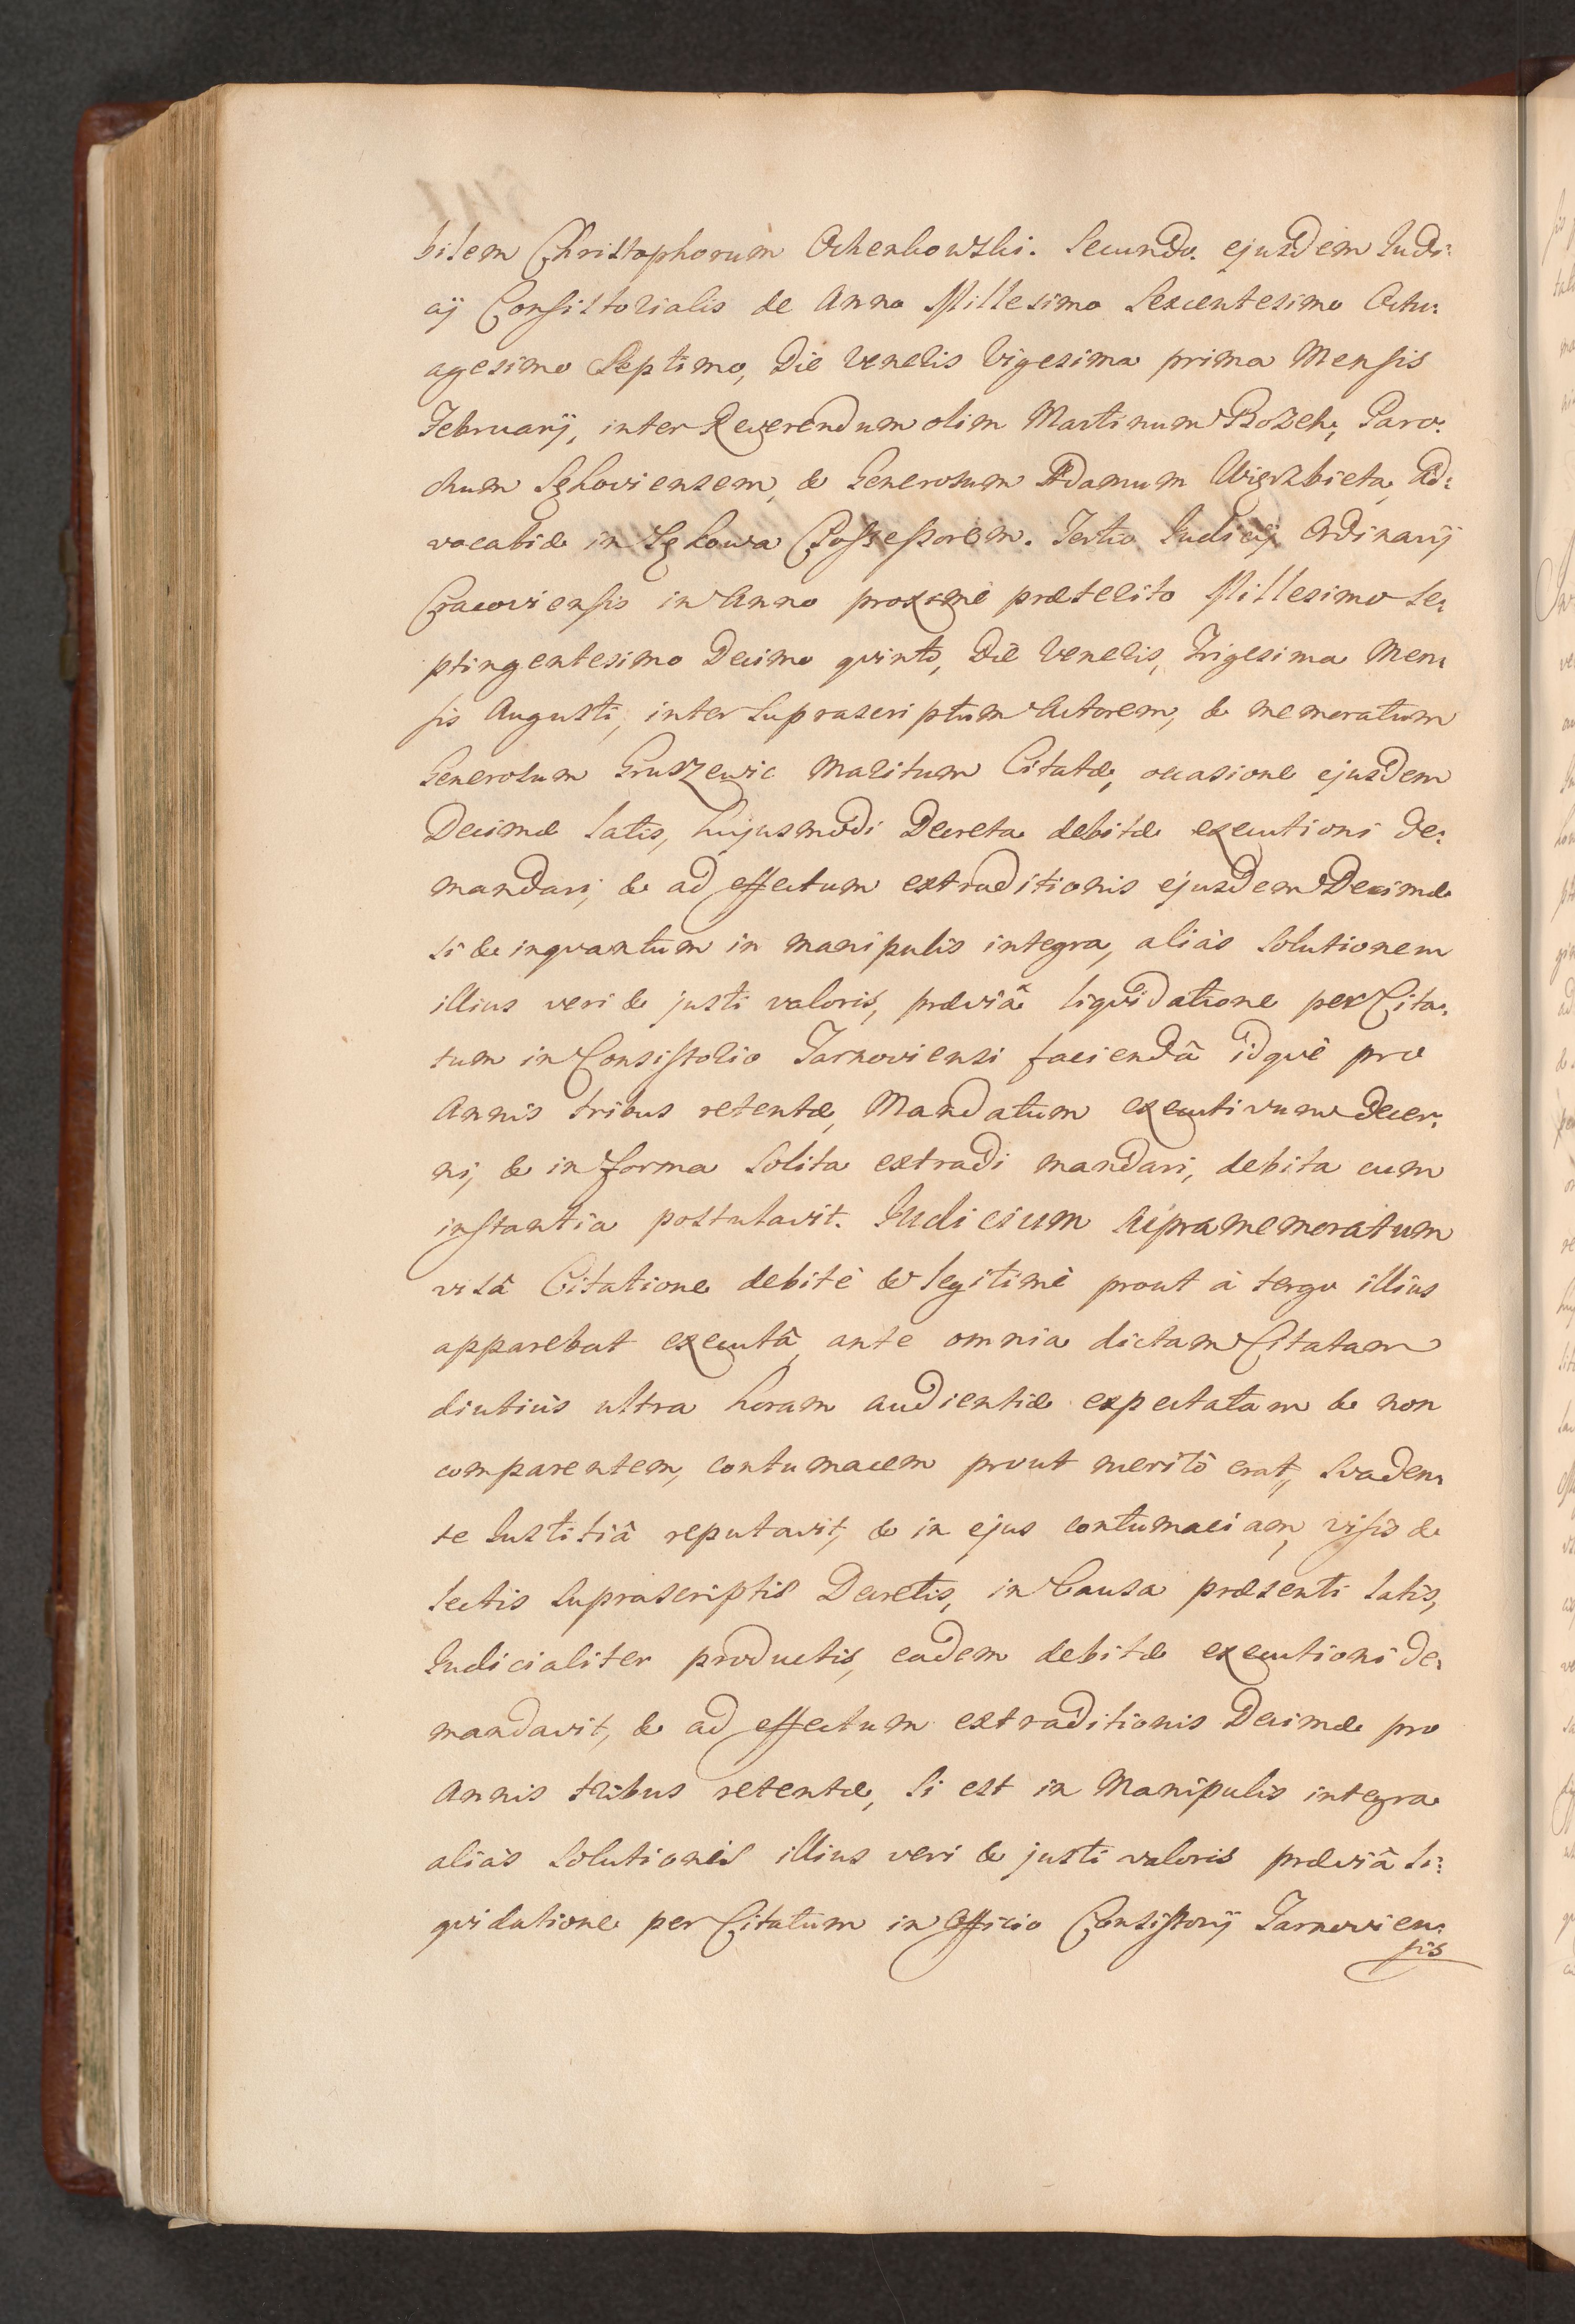 bilem Christophorum Ochenkowski. Secundo. ejusdem Judi:
cij Consistorialis de Anno Millesimo Sexcentesimo Octu:
agesimo Septimo, Die Veneris Vigesima prima Mensis
February, inter Reverendum olim Martinum Rozek, Paro:
chum Sękoviensem, & Generosum Adamum Wierzbieta, Ad:
vocatiæ in Sękowa Possessorem. Tertio Judicij Ordinarij
Cracoviensis in Anno proximè præterito Millesimo Se:
ptingentesimo Decimo quinto, Die Veneris, Trigesima Men:
sis Augusti, inter suprascriptum Actorem, & memoratum
Generosum Gruszewic Maritum Citatæ, occasione ejusdem
Decimæ latis, hujusmodi Decreta debitæ executioni de:
mandari, & ad effectum extraditionis ejusdem Decimæ
si & inqvantum in manipulis integra, aliàs solutionem
illius veri & justi valoris, præviâ liqvidatione per Cita:
tum in Consistorio Tarnoviensi faciendâ idqvè pro
Annis tribus retentæ, Mandatum executivum decer:
ni, & in forma solita extradi mandari, debita cum
instantia postulavit. Judicium supramemoratum
visâ Citatione debitè & legitimè prout à tergo illius
apparebat executâ, ante omnia dictam Citatam
diutiùs ultra horam audientiæ expectatam & non
comparentem, contumacem prout meritò erat, svaden:
te Justitiâ reputavit, & in ejus contumaciam, visis &
lectis suprascriptis Decretis, in Causa præsenti latis,
Judicialiter productis, eadem debitæ executioni de:
mandavit, & ad effectum extraditionis Decimæ pro
Annis tribus retentæ, si est in Manipulis integra
aliàs solutionis illius veri & justi valoris præviâ li:
qvidatione per Citatum in Officio Consistorij Tarnovien:
sis